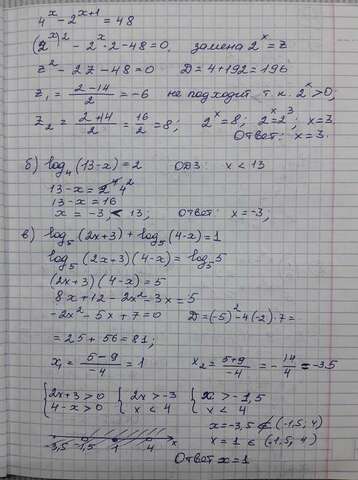 4^x - 2^{x+1} = 48
(2^x)^2 - 2^x · 2 - 48 = 0. замена 2^x = z
z^2 - 2z - 48 = 0 D = 4 + 192 = 196
z_1 = (2 - 14)/2 = -6 не подходит т.к. 2^x > 0
z_2 = (2 + 14)/2 = 16/2 = 8, 2^x = 8, 2^x = 2^3; x = 3
Ответ: x = 3.
б) log_4 (13 - x) = 2 ОДЗ: x < 13
13 - x = 4^2
13 - x = 16
x = -3 < 13, Ответ: x = -3,
в) log_5 (2x + 3) + log_5 (4 - x) = 1
log_5 (2x + 3)(4 - x) = log_5 5
(2x + 3)(4 - x) = 5
8x + 12 - 2x^2 - 3x = 5
-2x^2 + 5x + 7 = 0 D = (5)^2 - 4(-2)·7 =
= 25 + 56 = 81;
x_1 = (5 - 9)/-4 = 1 x_2 = (5 + 9)/-4 = -14/4 = -3,5
{2x + 3 > 0 {2x > -3 {x > -1,5
{4 - x > 0 {x < 4 {x < 4
x = -3,5 ∉ (-1,5; 4)
x = 1 ∈ (-1,5; 4)
-3,5 -1,5 1 4 x
Ответ: x = 1